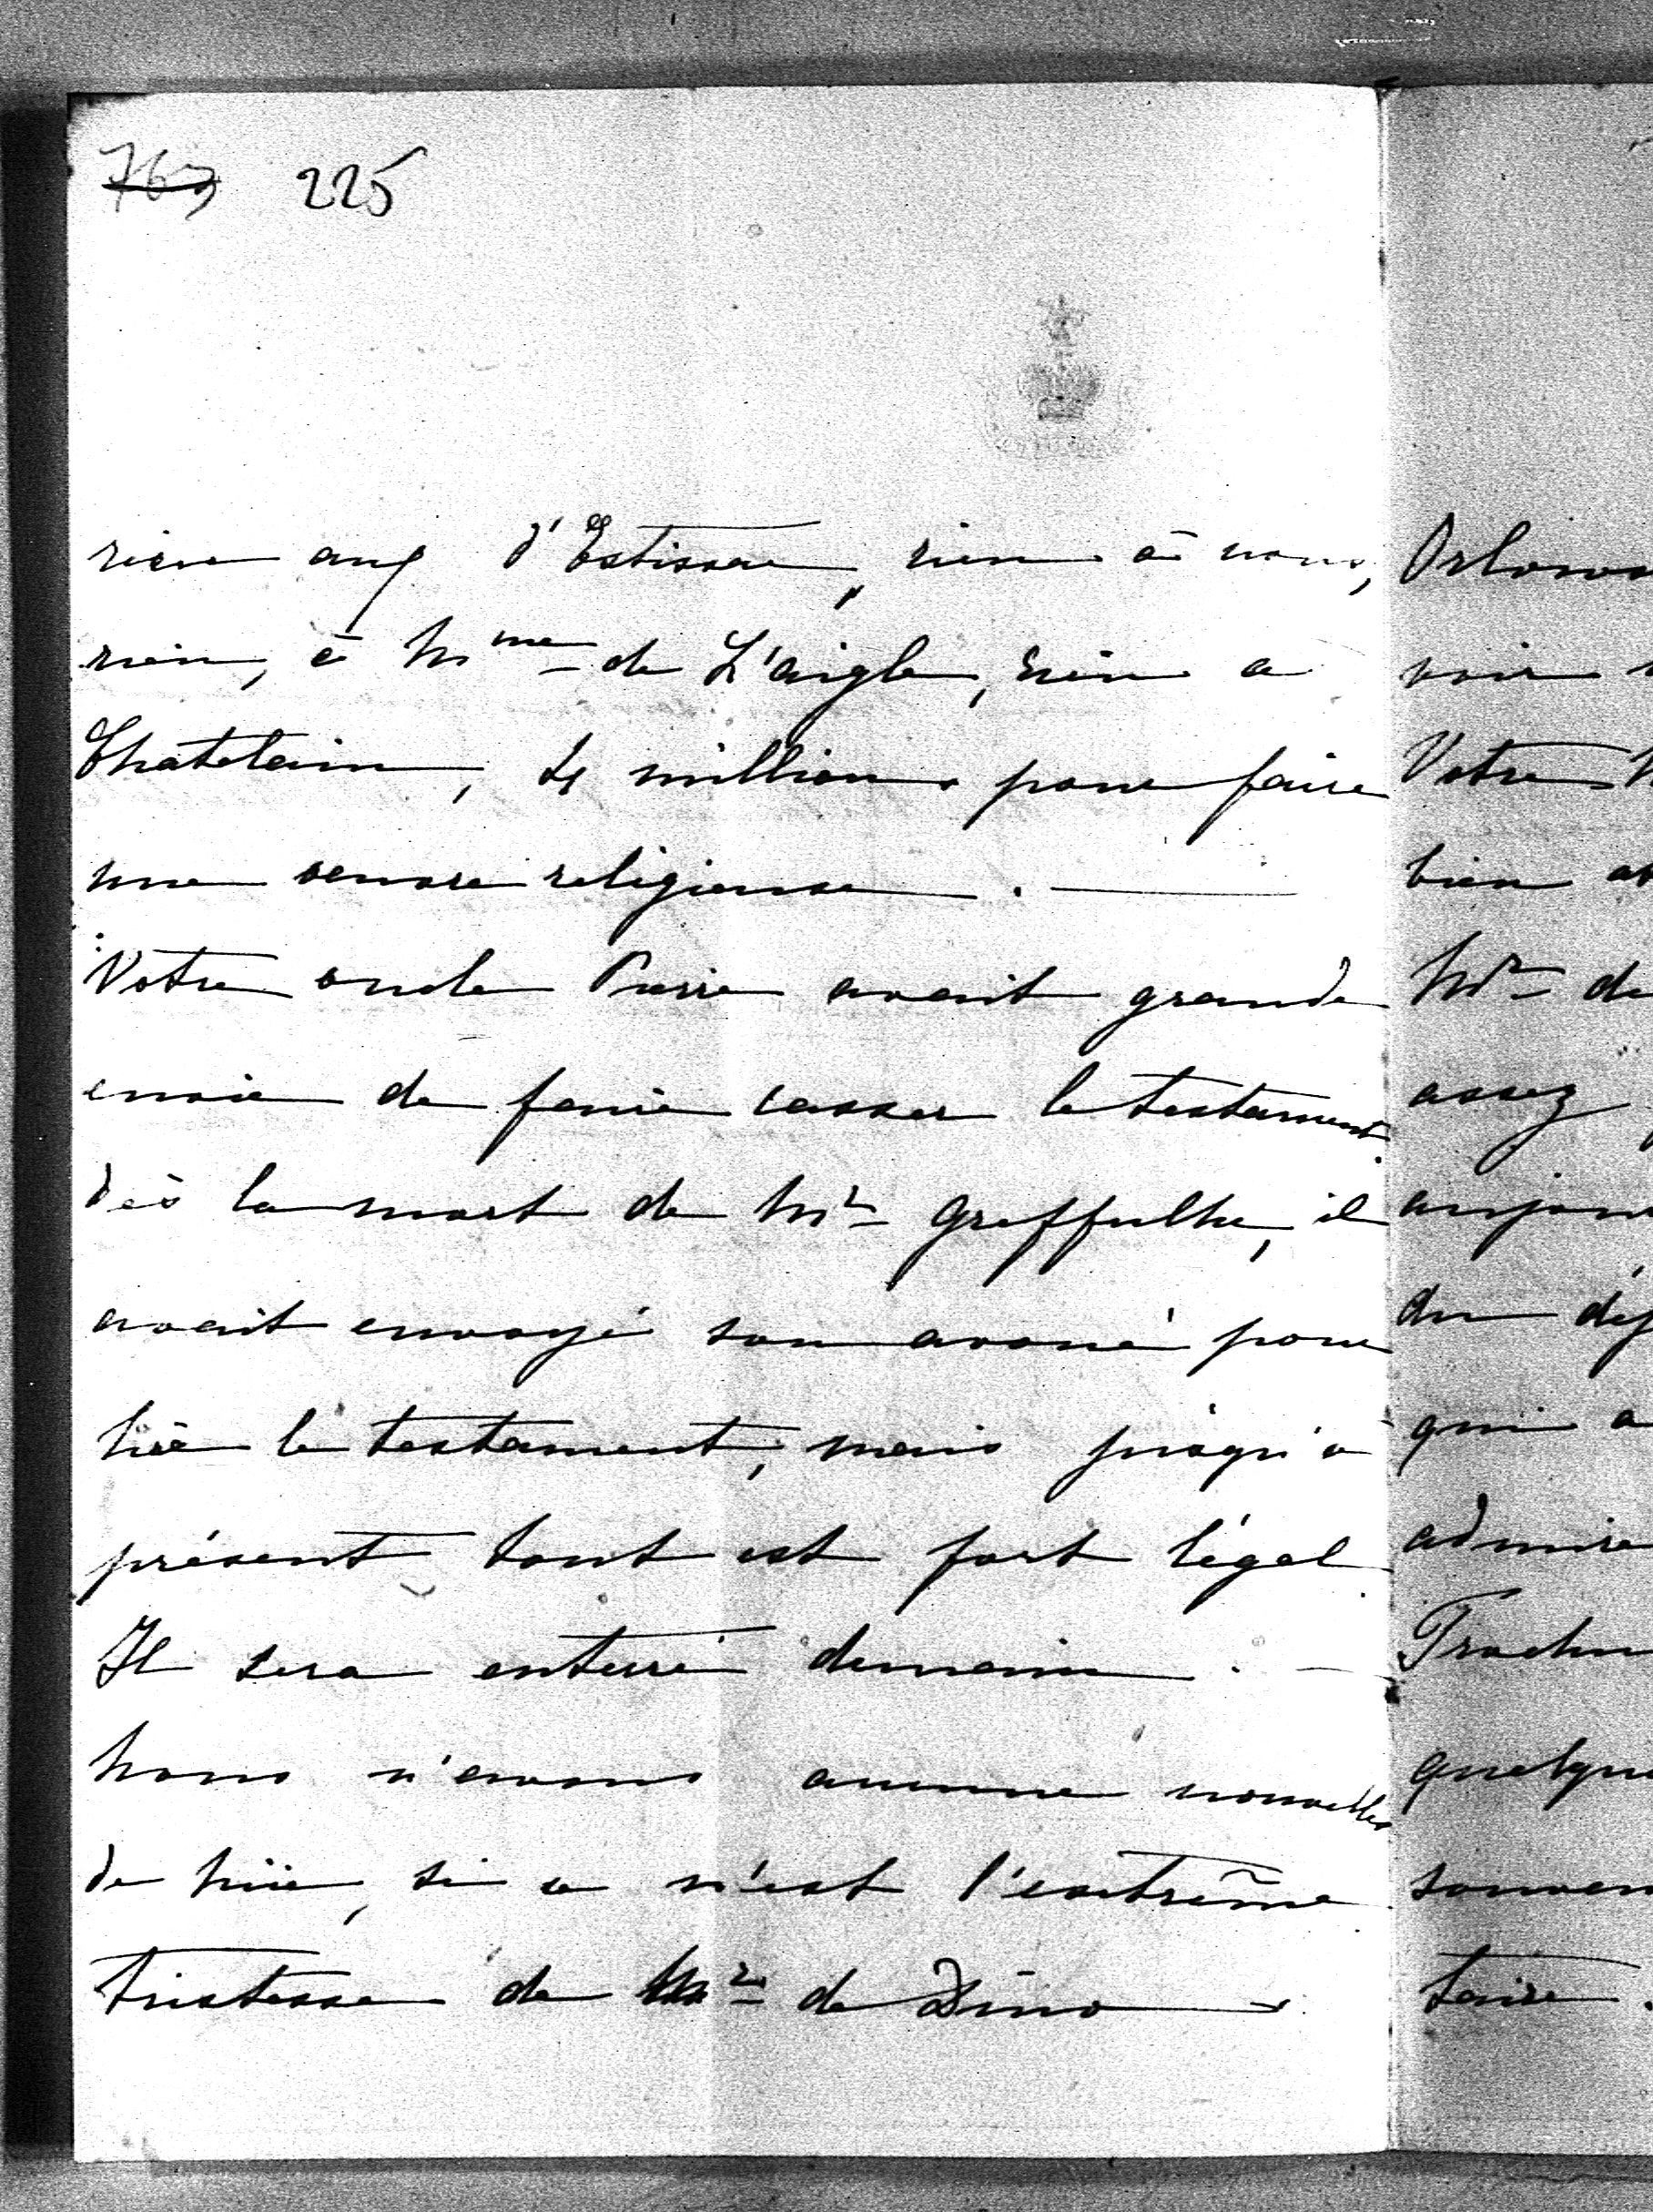 763 225
rien aux d'Estissac, rien à nous,
rien, à Mme de L'aigle, rien a
Chatelain, 4 millions pour faire
une oeuvre religieuse. —
Votre oncle Pierre avait grande
envie de faire casser le testament.
dès la mort de Mr Greffulhe, il
avait envoyé son avoué pour
lire le testament, mais jusqu'à
présent tout est fort légal.
Il sera enterré demain. —
Nous n'avons aucune nouvelles
de Nice, si ce n'est l'extrême
tristesse de Mr de Dino
voir
Votre
bien
Mr de
assez
du
qui a
admire
taire.